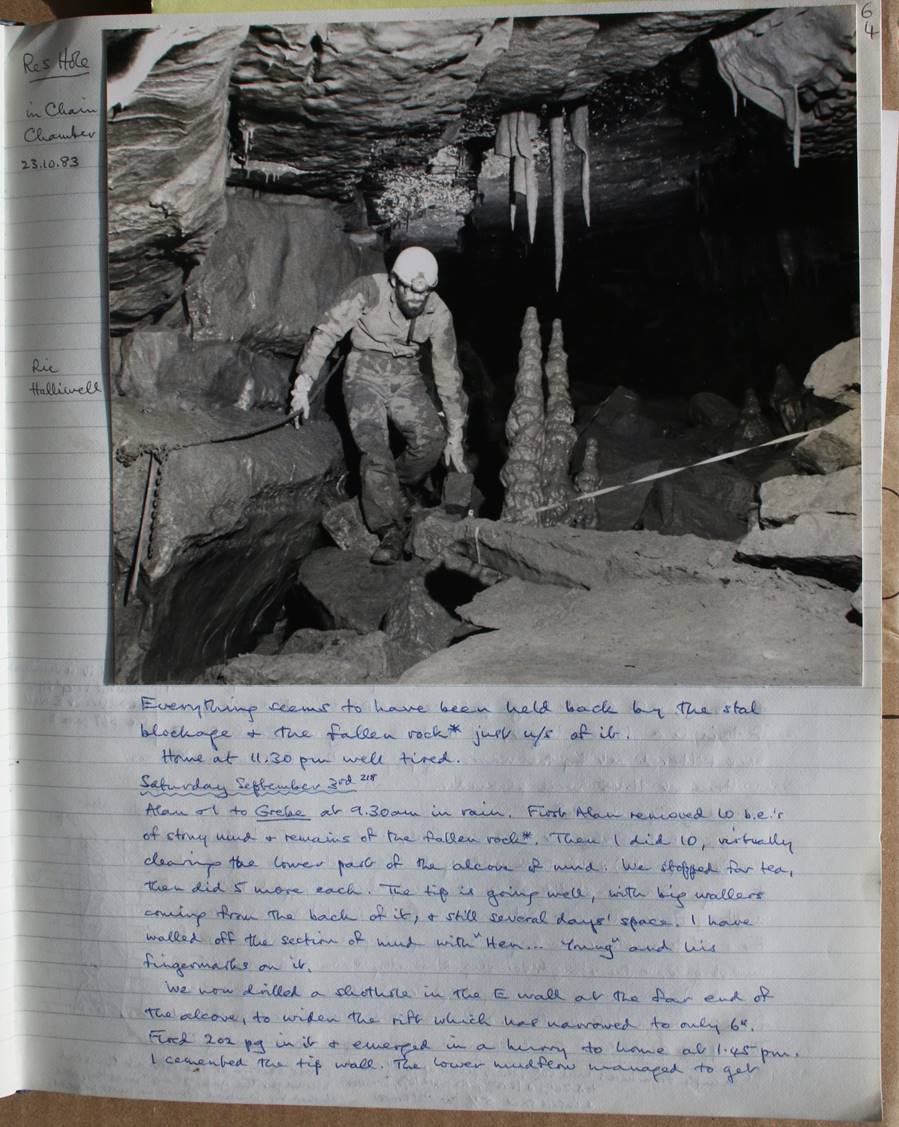 64
Res Hole
in Chain
Chamber
23.10.83
Ric
Halliwell
Everything seems to have been held back by the stal
blockage & the fallen rock* just u/s of it.
Home at 11.30 pm well tired.
Saturday September 3rd 218
Alan & I to Grebe at 9.30am in rain. First Alan removed 10 b.e.'s
of stony mud & remains of the fallen rock*. Then I did 10, virtually
clearing the lower part of the alcove of mud. We stopped for tea,
then did 5 more each. The tip is going well, with big wallers
coming from the back of it, & still several days' space. I have
walled off the section of mud with "Hen... Young" and his
fingermarks on it.
We now drilled a shothole in the E wall at the far end of
the alcove, to widen the rift which has narrowed to only 6".
Fired 2oz pg in it & emerged in a hurry to home at 1.45 pm.
I cemented the tip wall. The lower mudflow managed to get